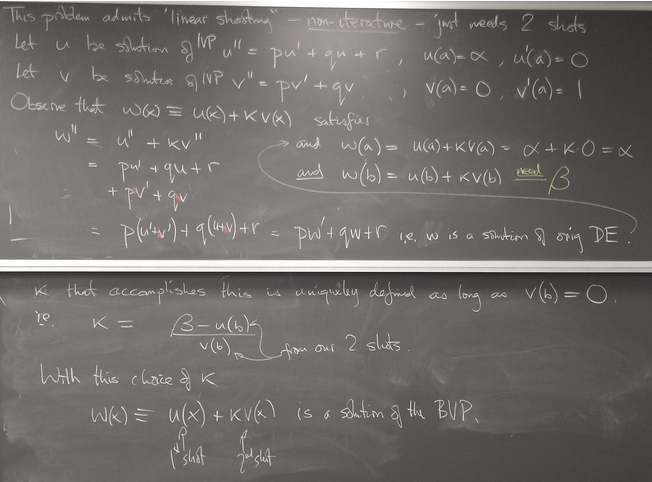 This problem admits "linear shooting" - non-iterative - just needs 2 shots.
Let u be solution of IVP u'' = pu' + qu + r , u(a) = α , u'(a) = 0
Let v be solution of IVP v'' = pv' + qv , v(a) = 0 , v'(a) = 1
Observe that w(x) ≡ u(x) + Kv(x) satisfies
w'' = u'' + Kv''
= pu' + qu + r
+ pv' + qv
= p(u'+v') + q(u+v) + r = pw' + qw + r i.e. w is a solution of orig DE.
and w(a) = u(a) + Kv(a) = α + K·0 = α
and w(b) = u(b) + Kv(b) need β
K that accomplishes this is uniquely defined as long as v(b) = 0.
i.e. K = β - u(b) / v(b) from our 2 shots.
With this choice of K
w(x) ≡ u(x) + Kv(x) is a solution of the BVP.
1st shot 2nd shot